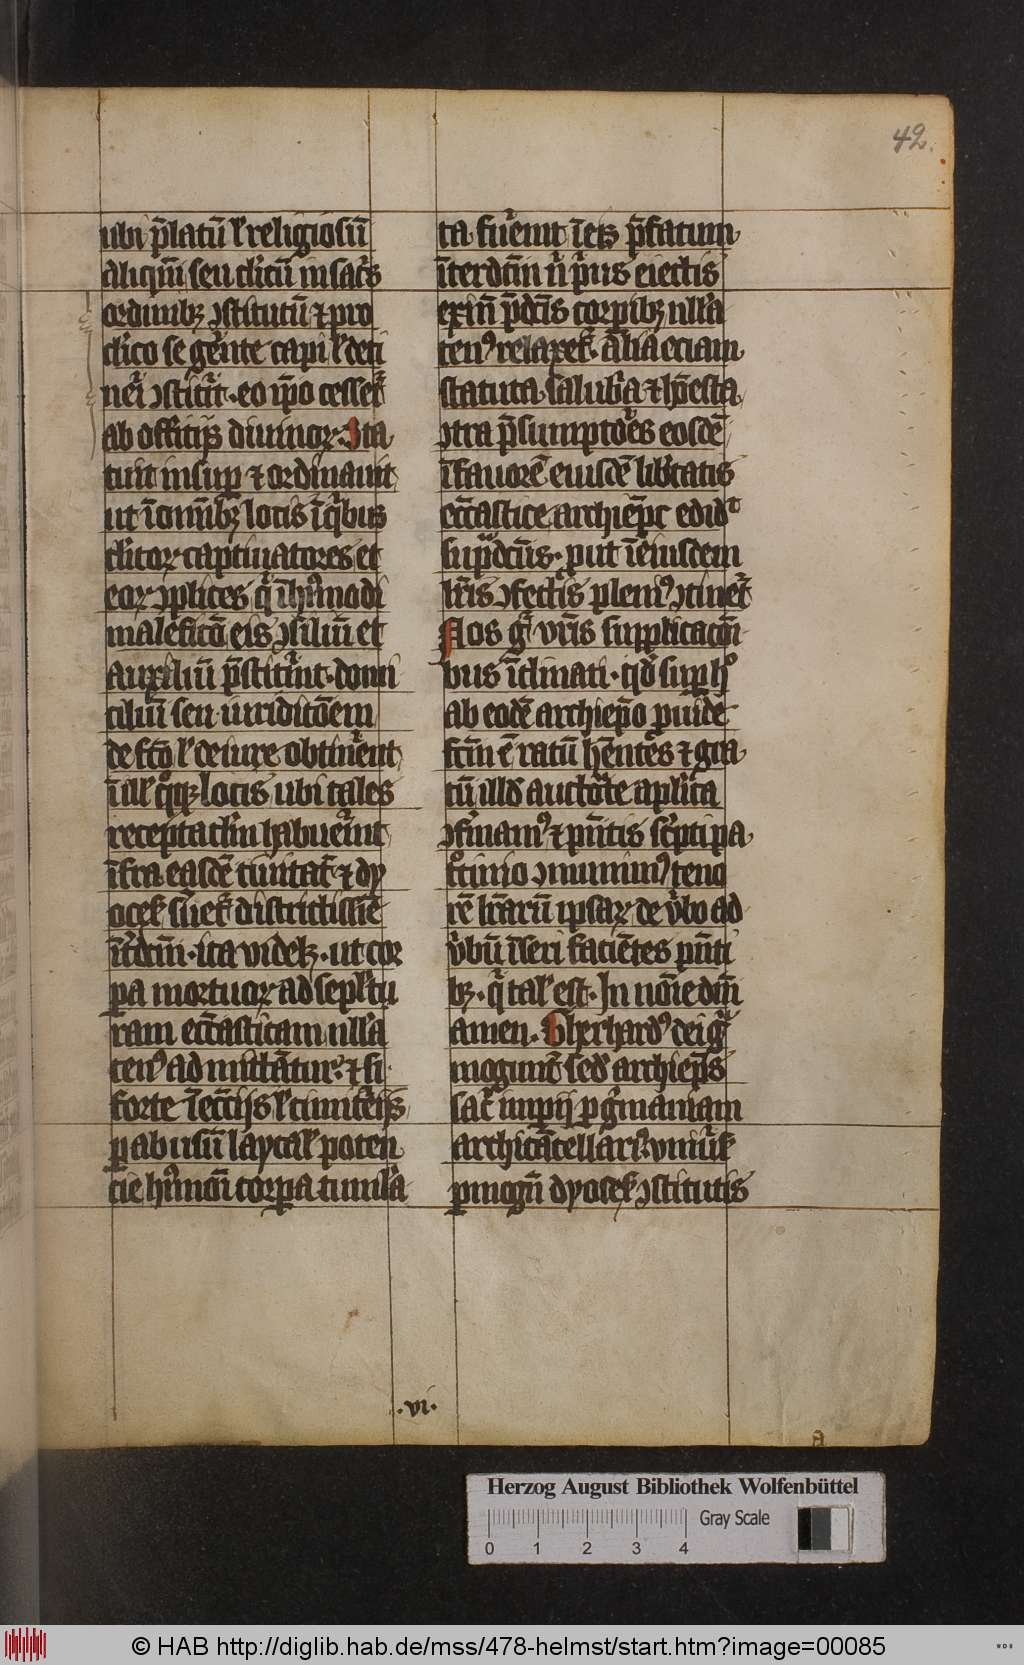 42.
ubi p̄latū l' religiosū
aliquē seu cl'icū in sacͥs
ordinibꝫ ɔstitutū ⁊ pro
cl'ico se ger̄nte capi l' deti
neri ɔstitit̄ · eo ip̄o cesset̄
ab offitijs diuinoꝝ · Sta
tuit insuꝑ ⁊ ordinauit
ut ī om̄ibꝫ locis ī qͥbus
cl'icoꝝ captiuatores et
eoꝝ ɔplices qͥ ī hꝰmodi
maleficō eis ɔsiliū et
auxiliū p̄stitͥnt · domi
ciliū seu iuriditōem
de fc̄o l' de iure obtin̄ent
ī ill' qͦqꝫ locis ubi tales
receptacl'm habuer̄int
īfra easdē ciuitat̄ ⁊ dy
oceꝭ suīeꝭ districtissīe
īt̄dc̄m · ita videlꝫ · ut cor
ꝑa mortuoꝝ ad sepl'tu
ram ecc̄asticam nll'a
tenꝰ admittātur · ⁊ si
forte ī ecc̄ijs l' cimit̄ijs
ꝑ abusū laycal' poten
cie hꝰmōi corꝑa tumla'
ta fuer̄int ī eis p̄fatum
īterdc̄m nͥ pͥus eiectis
exin̄ p̄dc̄is corꝑibꝫ nll'a
tenꝰ relaxeꝭ · Alia eciam
statuta · salub'a ⁊ hōesta
ɔtra p̄sumptōes eosdē
ī fauorē eiusdē lib'tatis
ecc̄astice archiep̄c edidᵗ
sup̄dc̄us · put ī eiusdem
lr̄is ɔfectis pleniꝰ ɔtinet̄
Nos gͥ vr̄is supplicacōi
bus īclinati · qd̄ suꝑ hͦ
ab eodē archiep̄o ꝓuide
fc̄m ē ratū hn̄tes ⁊ gra
tū illd̄ auctōte aplica
ɔfirmamꝰ ⁊ pn̄tis sc̄pti pa
tͦcinio ɔmunimꝰ teno
rē lr̄arū ipsaꝝ de v'bo ad
v'bū īseri faciētes pn̄ti
bꝫ · qͥ tal' est · In nōie dn̄i
amen · Gherhardꝰ dei gr̄a
mogunt̄ sed̄ archiep̄s
sac̄ imꝑij ꝑ g'maniam
archicācellariꝰ · vniu'ꝭ
ꝑ mogū dyoseꝭ ɔstitutis
· vi ·
a
Herzog August Bibliothek Wolfenbüttel
Gray Scale
0 1 2 3 4
© HAB http://diglib.hab.de/mss/478-helmst/start.htm?image=00085
WDB